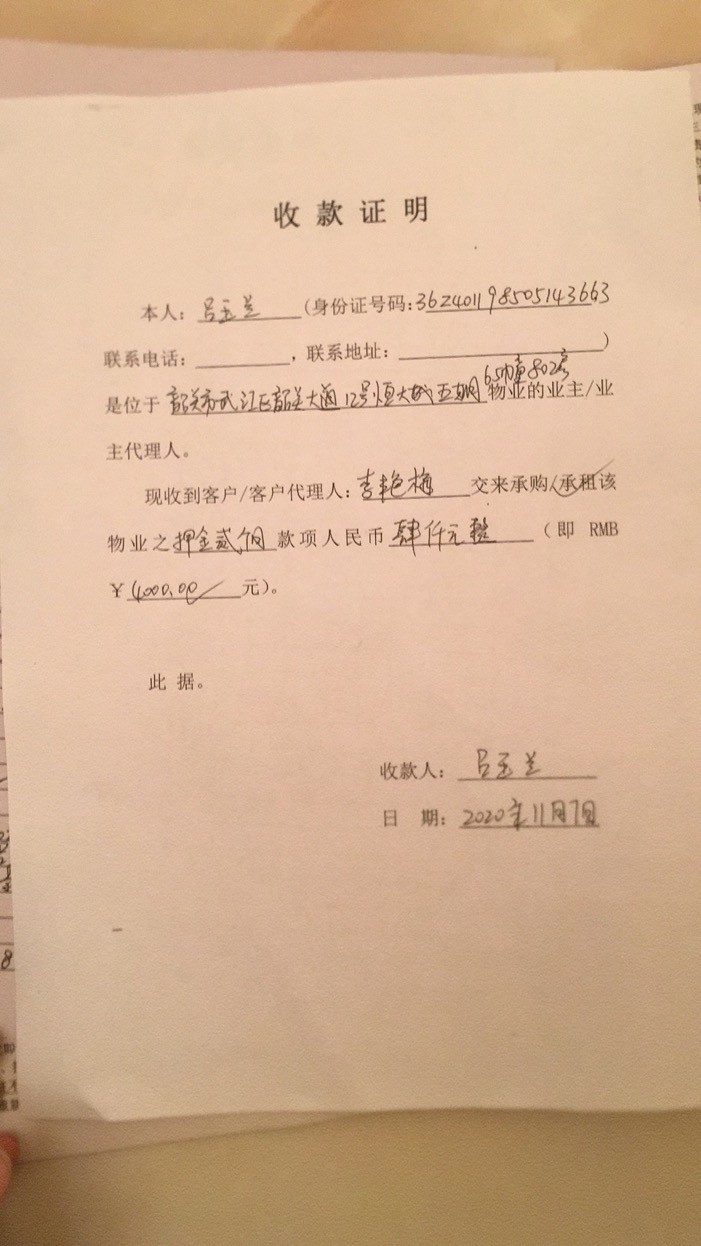 收款证明
本人：吕玉兰（身份证号码：362401198505143663
联系电话：，联系地址：）
65幢802房
是位于韶关市武江区韶关大道12号恒大城五期物业的业主/业
主代理人。
现收到客户/客户代理人：李艳梅交来承购/承租该
物业之押金贰个月款项人民币肆仟元整（即 RMB
￥4000.00元）。
此据。
收款人：吕玉兰
日 期：2020年11月7日
8